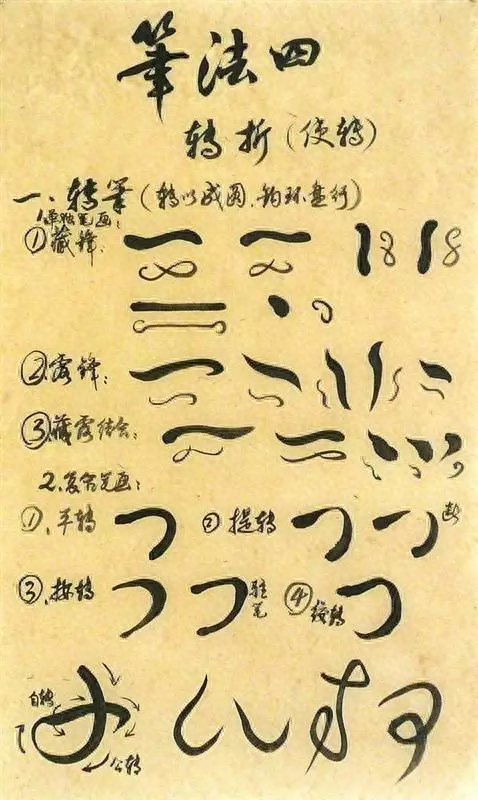 筆法四
转折(使转)
一、转筆(转以成圆、钩环盘行)
1.单独笔画:
①藏锋:
②露锋:
③藏露结合:
2.复合笔画:
①、平转
②提转
断
③、按转
驻笔
④绞转
自转
公转